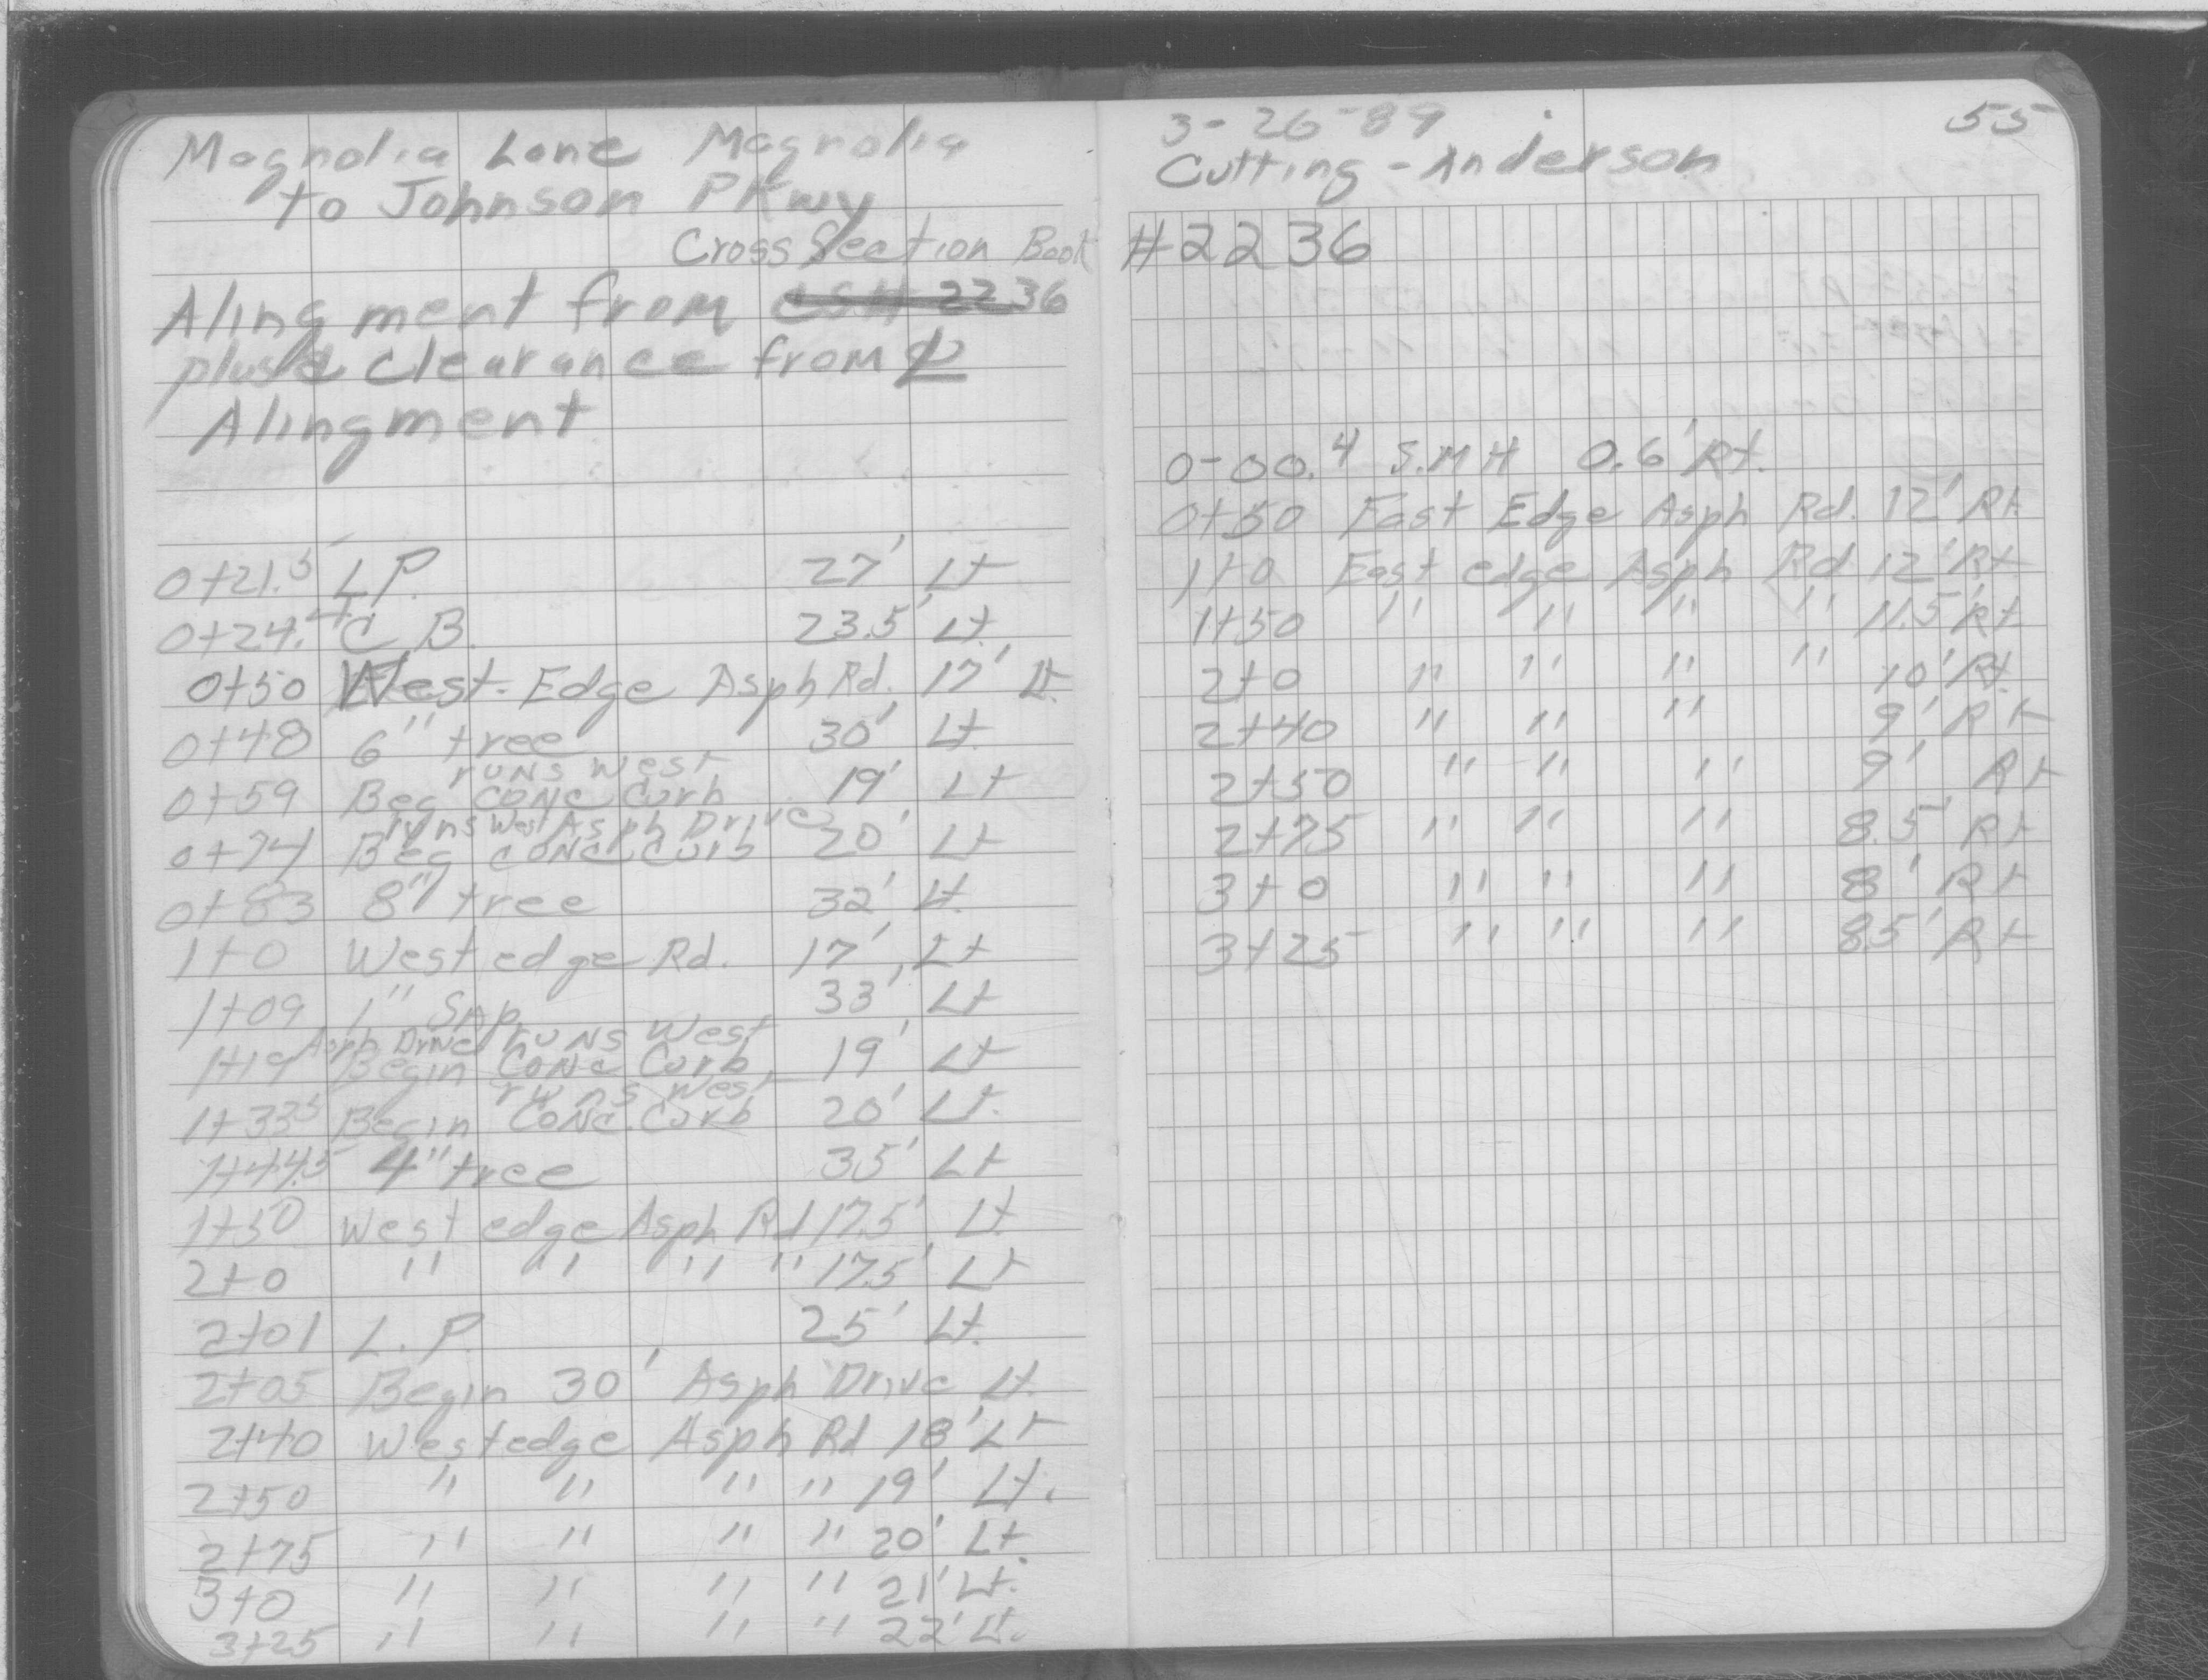 Magnolia Lane Magnolia
to Johnson PKwy
Cross Section Book
Alingment from 2236
plus & Clearance from ℄
Alingment
0+21.5 L.P. 27' Lt
0+24.4 C.B. 23.5' Lt.
0+50 West Edge Asph Rd. 17' Lt.
0+48 6" tree 30' Lt.
runs West
0+59 Beg CONC Curb 19' Lt
runs West Asph Drive
0+74 Beg CONC Curb 20' Lt
0+83 8" tree 32' Lt.
1+0 West edge Rd. 17' Lt
1+09 1" SAp 33' Lt
Asph Drive runs West
1+19 Begin CONC Curb 19' Lt
runs West
1+33.5 Begin CONC. Curb 20' Lt.
1+44.5 4" tree 35' Lt
1+50 West edge Asph Rd 17.5' Lt.
2+0 " " " " 17.5' Lt
2+01 L.P. 25' Lt.
2+05 Begin 30' Asph Drive Lt.
2+40 West edge Asph Rd 18' Lt
2+50 " " " " 19' Lt.
2+75 " " " " 20' Lt.
3+0 " " " " 21' Lt.
3+25 " " " " 22' Lt.
3-26-89 55
Cutting - Anderson
#2236
0-00.4 S.M H 0.6' Rt.
0+50 East Edge Asph Rd. 12' Rt.
1+0 East edge Asph Rd 12' Rt.
1+50 " " " " 11.5' Rt
2+0 " " " " 10' Rt.
2+40 " " " 9' Rt
2+50 " " " 9' Rt
2+75 " " " 8.5' Rt
3+0 " " " 8' Rt
3+25 " " " 8.5' Rt